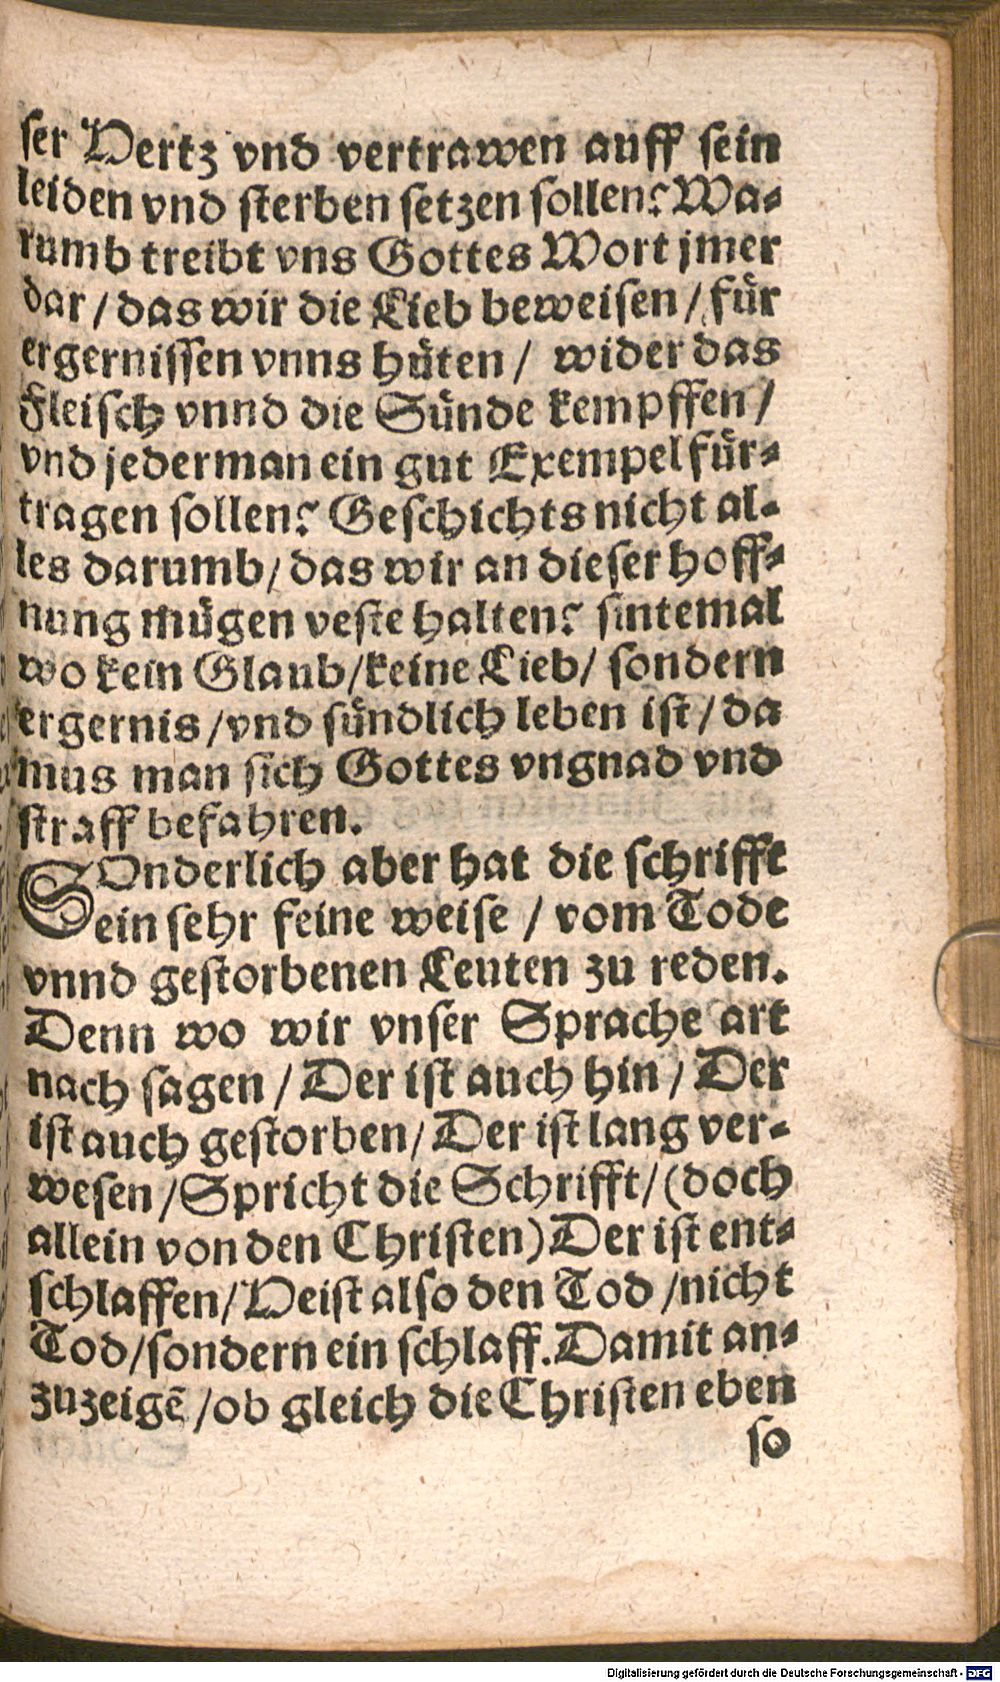 ser Hertz vnd vertrawen auff sein
leiden vnd sterben setzen sollen? Wa-
rumb treibt vns Gottes Wort jmer
dar / das wir die Lieb beweisen / für
ergernissen vnns hüten / wider das
Fleisch vnnd die Sünde kempffen /
vnd jederman ein gut Exempel für-
tragen sollen? Geschichts nicht al-
les darumb / das wir an dieser hoff-
nung mügen veste halten? sintemal
wo kein Glaub / keine Lieb / sondern
ergernis / vnd sündlich leben ist / da
mus man sich Gottes vngnad vnd
straff befahren.
SOnderlich aber hat die schrifft
ein sehr feine weise / vom Tode
vnnd gestorbenen Leuten zu reden.
Denn wo wir vnser Sprache art
nach sagen / Der ist auch hin / Der
ist auch gestorben / Der ist lang ver-
wesen / Spricht die Schrifft / (doch
allein von den Christen) Der ist ent-
schlaffen / Heist also den Tod / nicht
Tod / sondern ein schlaff. Damit an-
zuzeigẽ / ob gleich die Christen eben
so
Digitalisierung gefördert durch die Deutsche Forschungsgemeinschaft - DFG